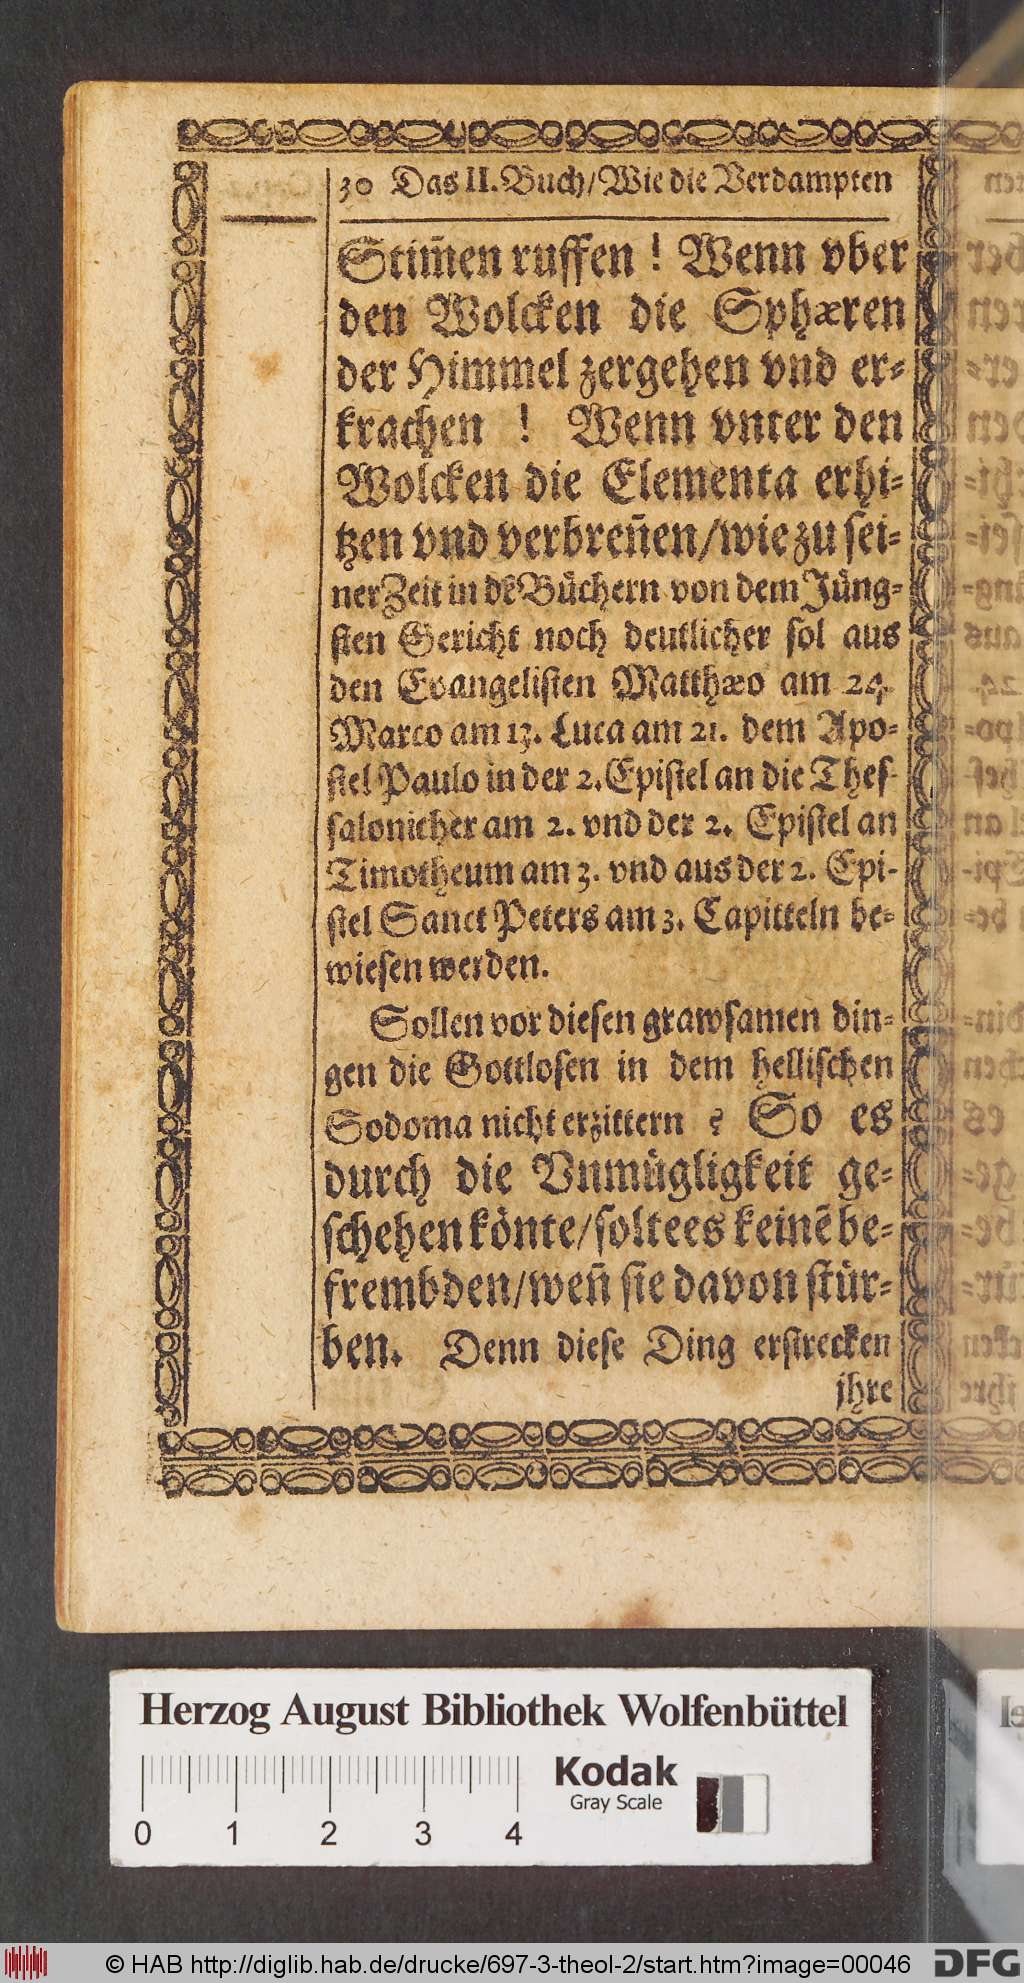 30 Das II. Buch/ Wie die Verdampten
Stim̃en ruffen! Wenn vber
den Wolcken die Sphæren
der Himmel zergehen vnd er-
krachen! Wenn vnter den
Wolcken die Elementa erhi-
tzen vnd verbreñen/ wie zu sei-
ner Zeit in dẽ Bůchern von dem Jůng-
sten Gericht noch deutlicher sol aus
den Evangelisten Matthæo am 24.
Marco am 13. Luca am 21. dem Apo-
stel Paulo in der 2. Epistel an die Thes-
salonicher am 2. vnd der 2. Epistel an
Timotheum am 3. vnd aus der 2. Epi-
stel Sanct Peters am 3. Capitteln be-
wiesen werden.
Sollen vor diesen grawsamen din-
gen die Gottlosen in dem hellischen
Sodoma nicht erzittern? So es
durch die Vnmůgligkeit ge-
schehen kônte/ soltees keinẽ be-
frembden/ weñ sie davon stůr-
ben. Denn diese Ding erstrecken
jhre
Herzog August Bibliothek Wolfenbüttel
0 1 2 3 4
Kodak
Gray Scale
© HAB http://diglib.hab.de/drucke/697-3-theol-2/start.htm?image=00046
DFG